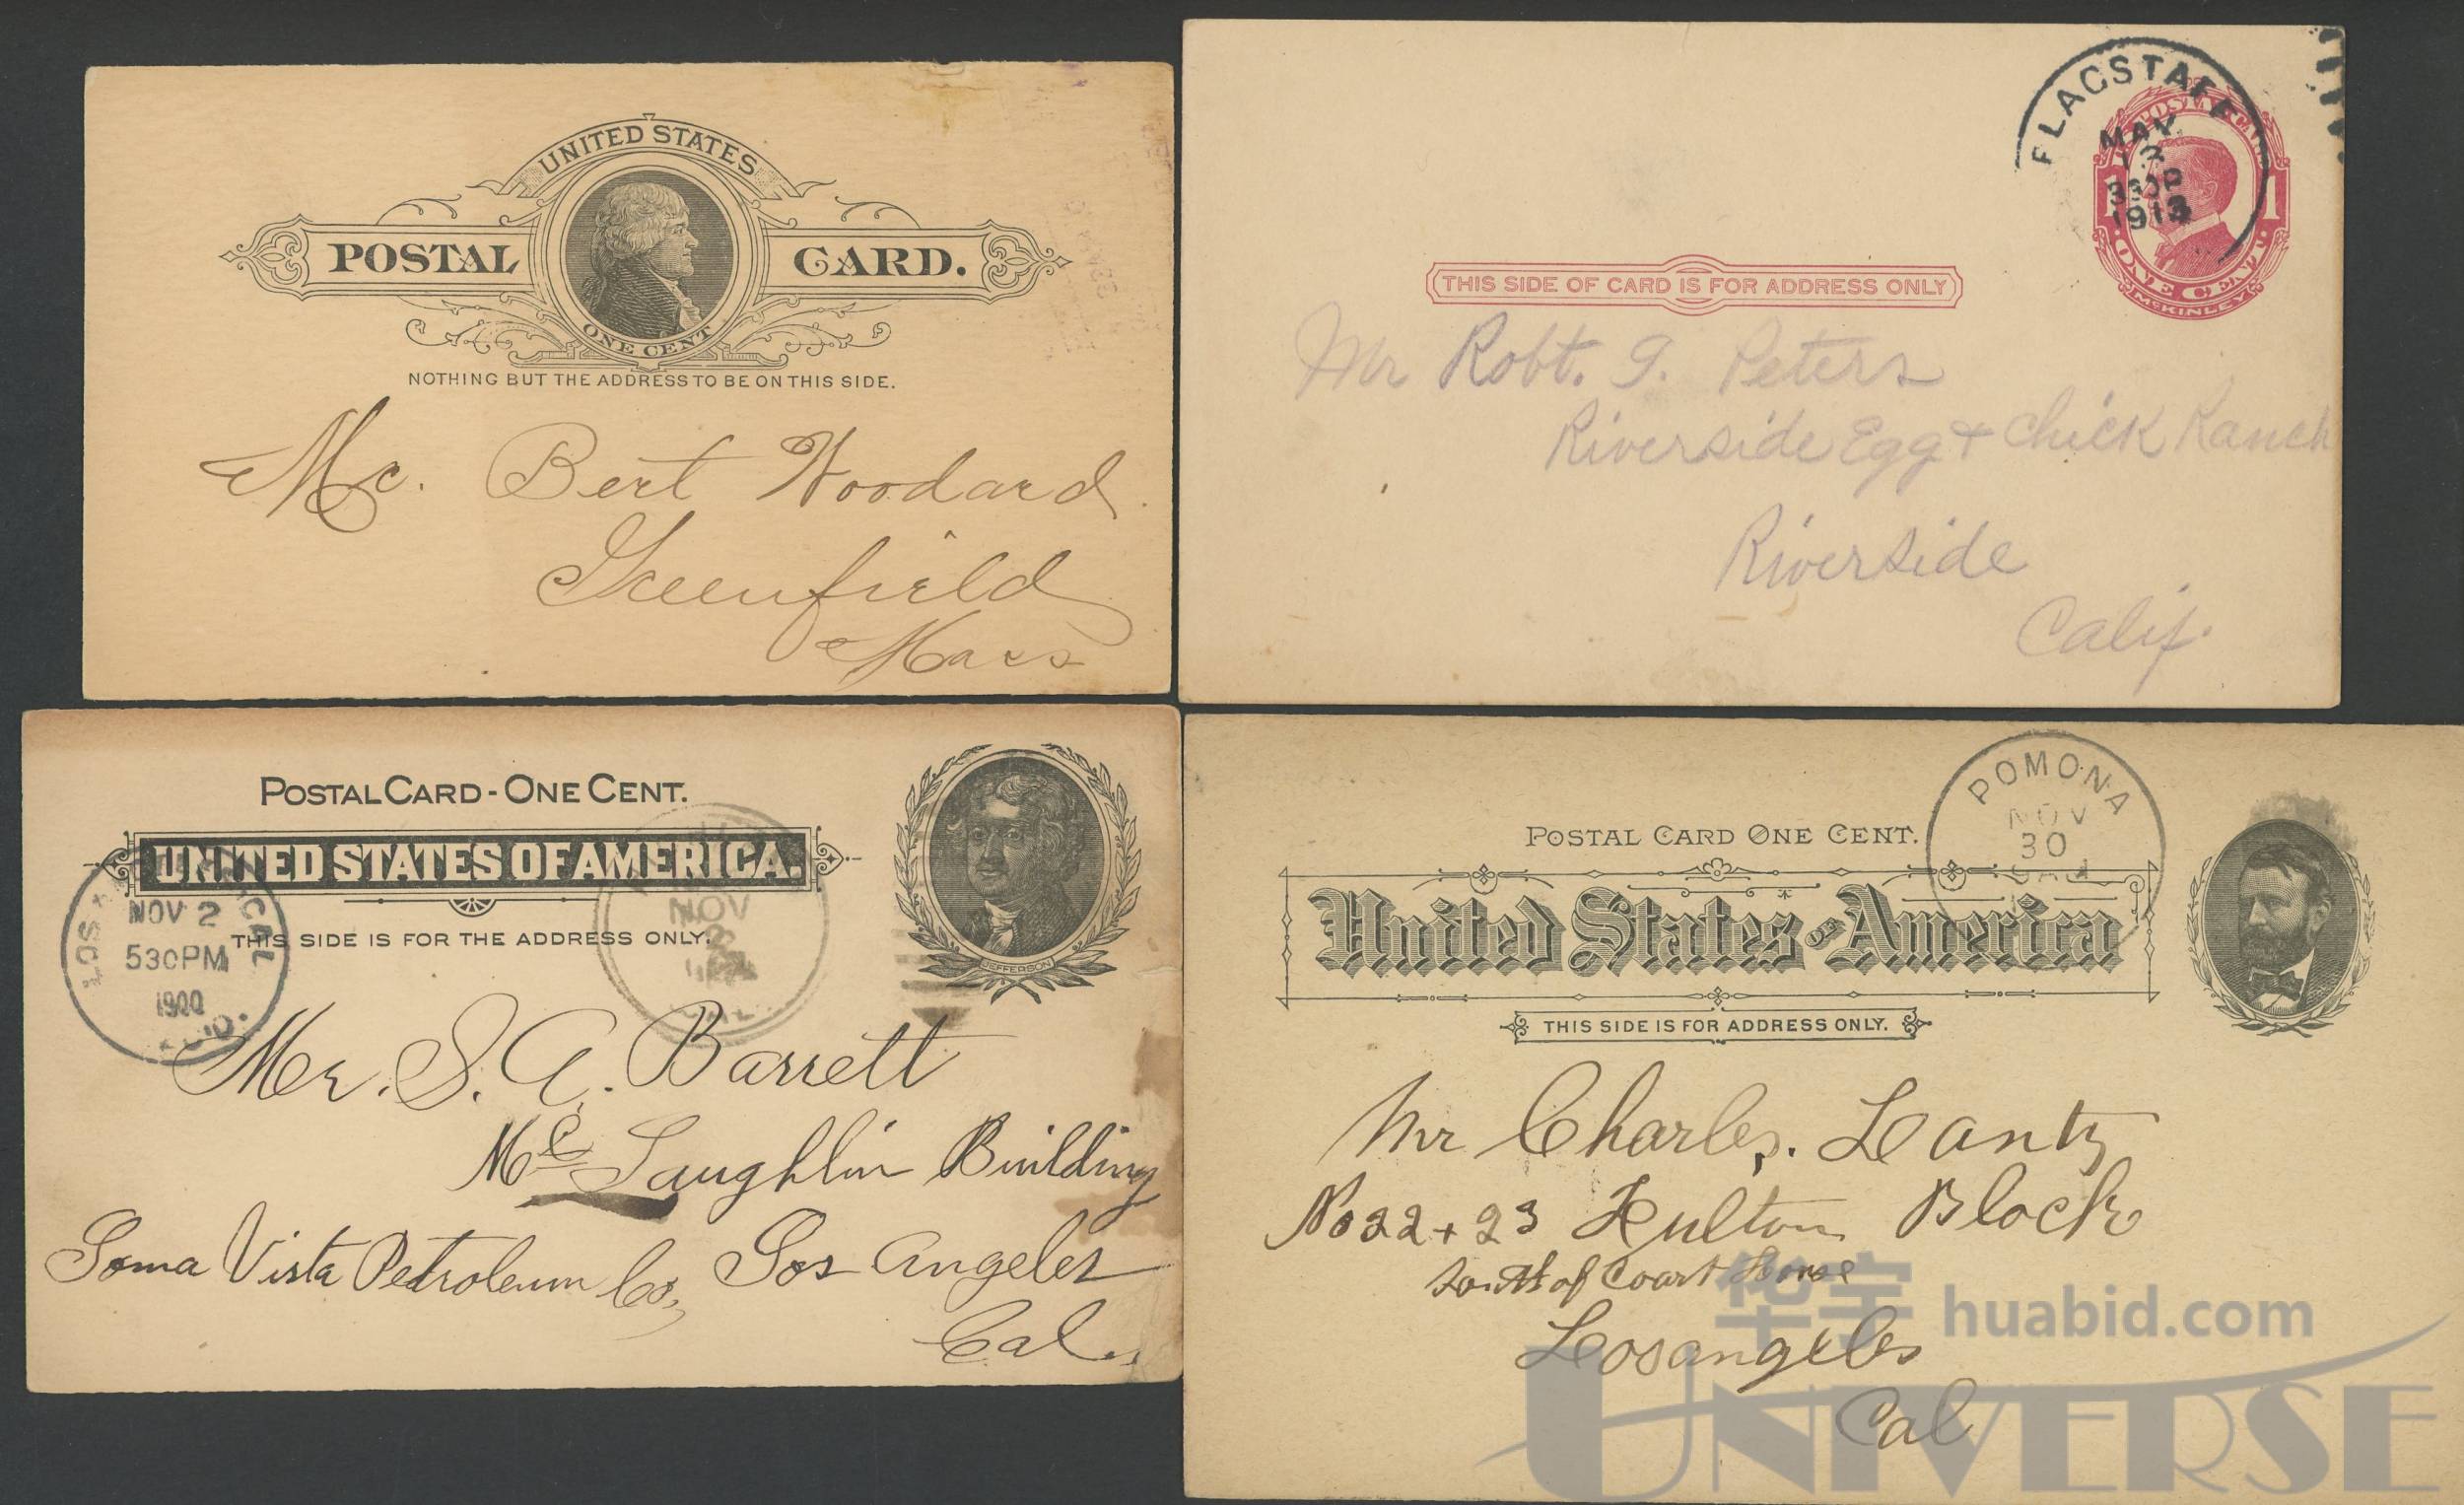 UNITED STATES
POSTAL CARD.
ONE CENT
NOTHING BUT THE ADDRESS TO BE ON THIS SIDE.
Mr. Bert Woodard
Greenfield
Mass
FLAGSTAFF
MAY
13
330P
1913
POSTAL CARD
1 1
ONE CENT
McKINLEY
THIS SIDE OF CARD IS FOR ADDRESS ONLY
Mr Robt. G. Peters
Riverside Egg & Chick Ranch
Riverside
Calif.
POSTAL CARD - ONE CENT.
UNITED STATES OF AMERICA.
THIS SIDE IS FOR THE ADDRESS ONLY.
JEFFERSON
NOV 2
530PM
1900
NOV
Mr. S. A. Barrett
Mc Laughlin Building
Loma Vista Petroleum Co, Los Angeles
Cal.
POMONA
NOV
30
POSTAL CARD ONE CENT.
United States of America
THIS SIDE IS FOR ADDRESS ONLY.
Mr Charles. Lantz
No 22 + 23 Fulton Block
South of Court House
Los angeles
Cal
华宇 huabid.com
UNIVERSE